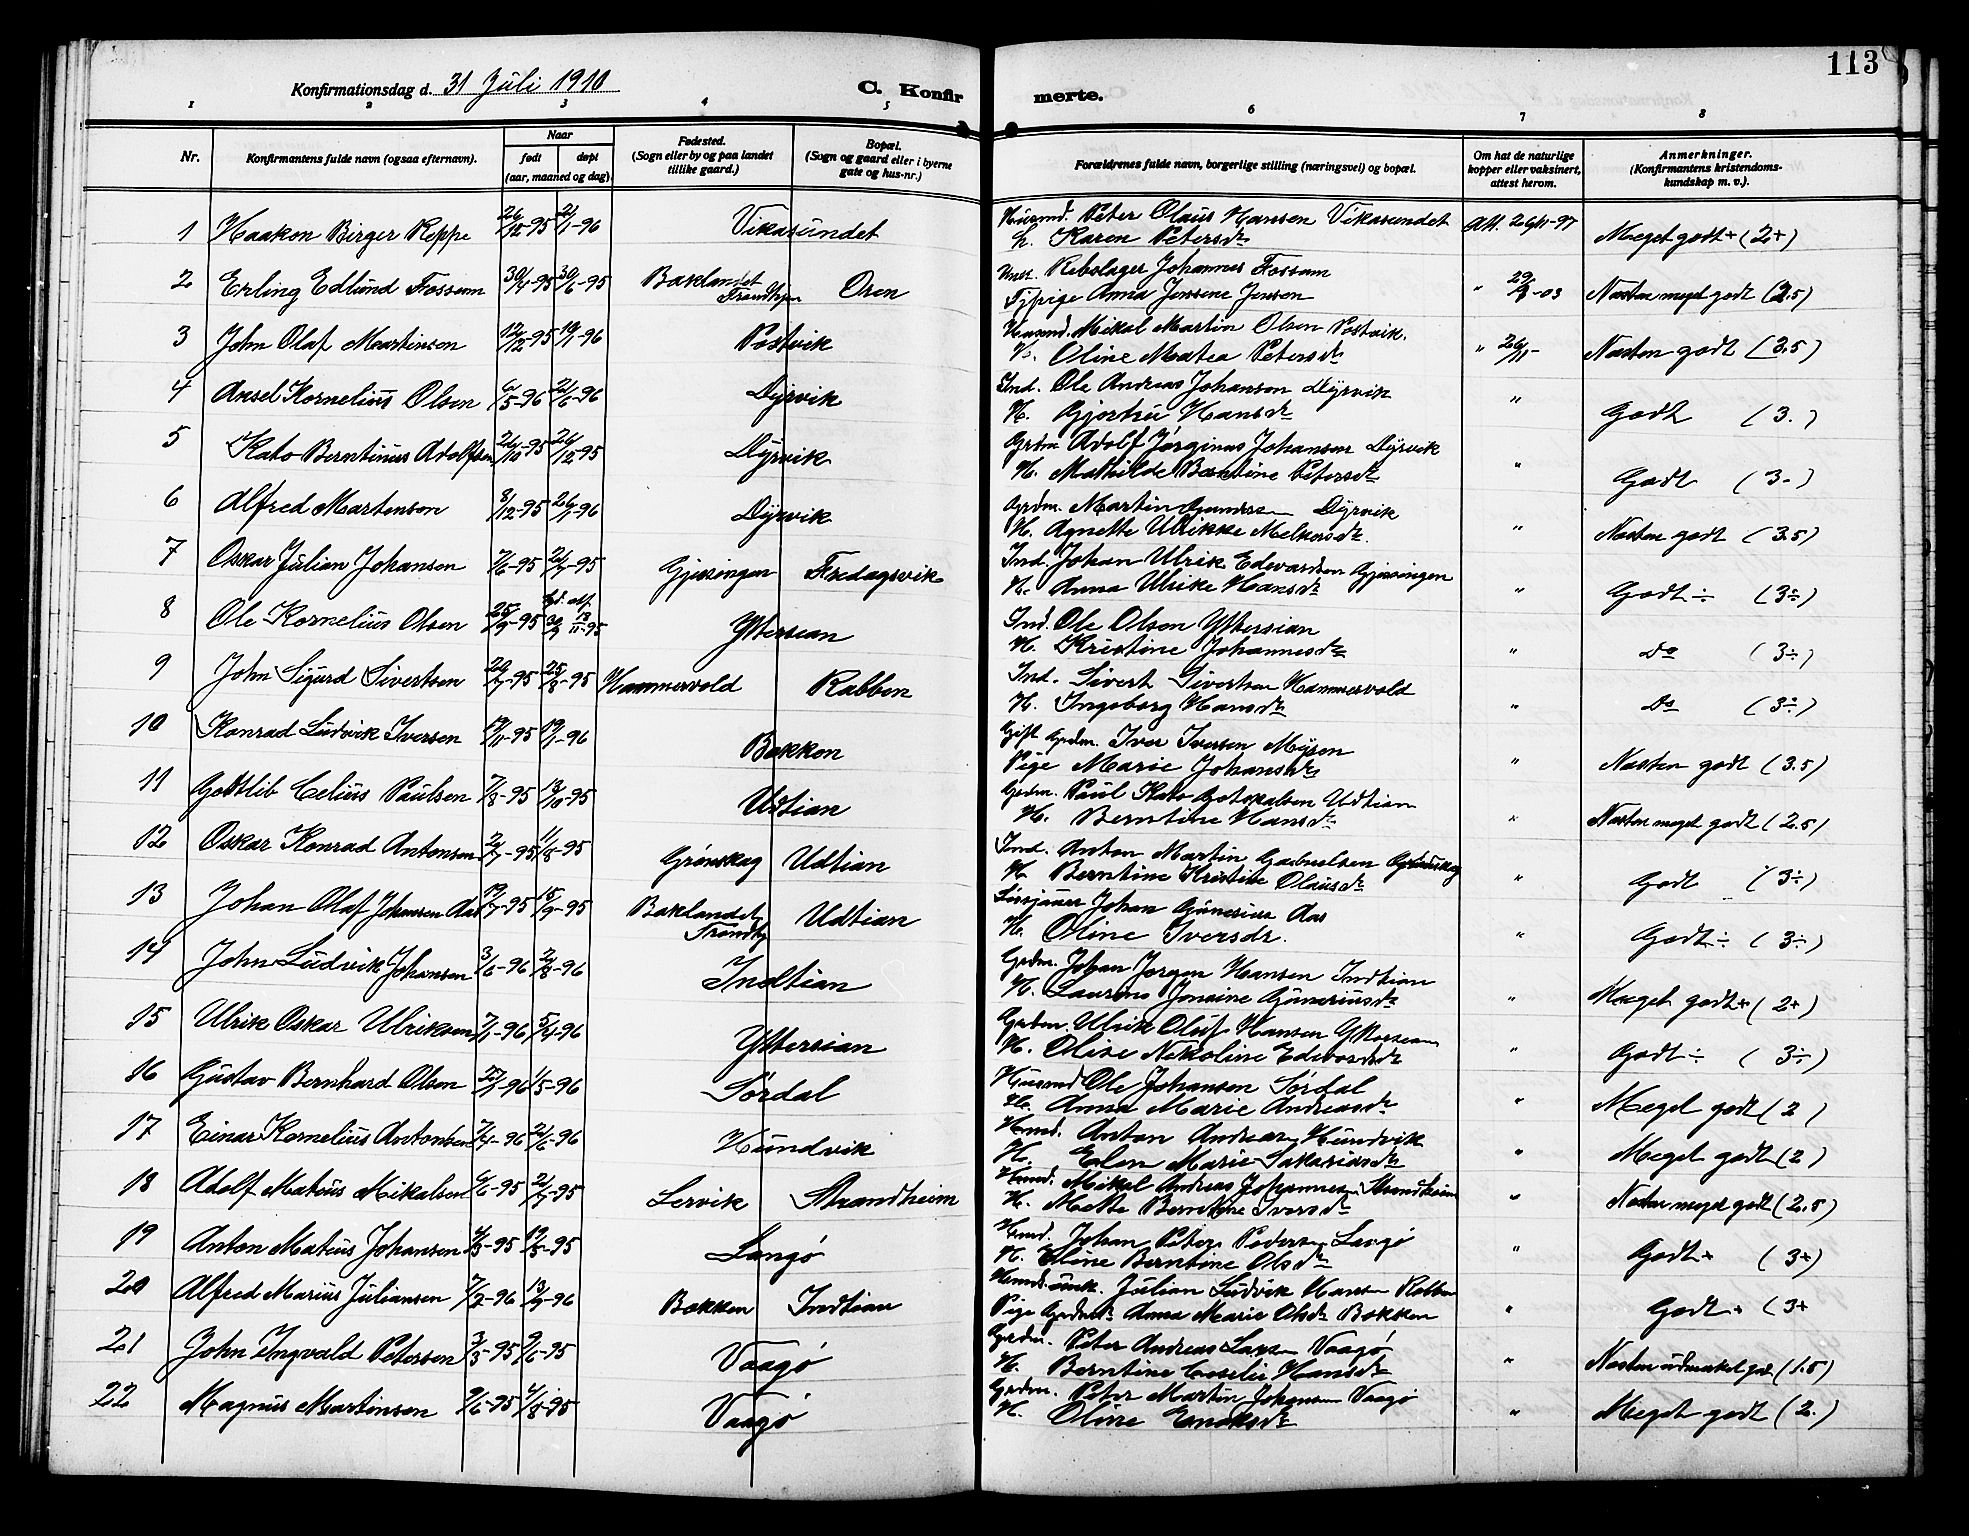 113
Konfirmationsdag d. 31 Juli 1910
C. Konfirmerte.
1 2 3 4 5 6 7 8
Nr.
Konfirmantens fulde navn (ogsaa efternavn).
Naar
født døpt
(aar, maaned og dag).
Fødested.
(Sogn eller by og paa landet
tillike gaard.)
Bopæl.
(Sogn og gaard eller i byerne
gate og hus-nr.)
Forældrenes fulde navn, borgerlige stilling (næringsvei) og bopæl.
Om hat de naturlige
kopper eller vaksinert,
attest herom.
Anmerkninger.
(Konfirmantens kristendoms-
kundskap m. v.).
1 Haakon Birger Reppe 26/12-95 2/1-96 Vikasundet Husmd. Peter Olaus Hansen Vikasundet Att. 26/11-97 Meget godt+ (2+)
h. Karen Petersdr
2 Erling Edlund Fossum 30/4-95 30/6-95 Baklandet Trondhjem Osen Rebslager Johannes Fossum " 29/3-03 Næsten meget godt (2.5)
Tj.pige Anna Jenssene Jensen
3 John Olaf Martinsen 12/12-95 19/1-96 Postvik Husmd. Mikal Martin Olsen Postvik. " 26/11- Næsten godt (3.5)
H. Oline Matea Petersdr
4 Ansel Kornelius Olsen 6/5-96 21/6-96 Dyrvik Ind. Ole Andreas Johansen Dyrvik " Godt (3.)
H. Gjertru Hansdr
5 Kato Berntinus Adolfsen 21/10-95 26/12-95 Dyrvik Grdm. Adolf Jørginus Johansen Dyrvik " Godt (3.)
H. Mathilde Berntine Petersdr
6 Alfred Martenson 3/12-95 26/1-96 Dyrvik Grdm. Martin Gundersen Dyrvik " Næsten godt (3.5)
H. Agnette Ulrikke Melkersdr.
7 Oskar Julian Johansen 7/6-95 21/7-95 Gjæsingen Fredagsvik Ind. Johan Ulrik Edvardsen Gjæsingen " Godt ÷ (3÷)
H. Anna Ulrike Hansdr
8 Ole Kornelius Olsen 25/9-95 30/9 13/11-95 Yttersian Ind. Ole Olsen Yttersian " Do (3÷)
H. Kristine Johannesdr
9 John Sigurd Sivertsen 20/7-95 25/8-95 Hammervold Rabben Ind. Sivert Sivertsen Hammervold " Do (3÷)
H. Ingeborg Hansdr
10 Konrad Ludvik Iversen 19/11-95 19/1-96 Bakken Gift Grdm. Iver Iversen Myren " Næsten godt (3.5)
Pige Marie Johansdr
11 Godtlib Celius Paulsen 7/8-95 13/10-95 Udtian Grdm. Paul Kato Gotskalsen Udtian " Næsten meget godt (2.5)
H. Berntine Hansdr
12 Oskar Konrad Antonsen 2/7-95 11/8-95 Grønskag Udtian Ind. Anton Martin Gabrielsen Grønskag " Godt (3÷)
H. Berntine Kristine Olausdr
13 Johan Olaf Johansen Aas 17/7-95 15/9-95 Baklandet, Trondhj Udtian Johan Gunerius Aas " Godt ÷ (3÷)
H. Oline Iversdr.
14 John Ludvik Johansen 3/6-96 2/8-96 Indtian Grdm. Johan Jørgen Hansen Indtian " Meget godt+ (2+)
H. Laurens Jonsine Guneriusdr
15 Ulrik Oskar Ulriksen 7/1-96 5/4-96 Yttersian Grdm. Ulrik Oluf Hansen Yttersian " Godt ÷ (3÷)
H. Oline Nikoline Edvardsdr
16 Gustav Bernhard Olsen 27/1-96 1/5-96 Sørdal Husmd Ole Johansen Sørdal " Meget godt (2)
H. Anna Marie Andreasdr
17 Einar Kornelius Antonsen 7/4-96 21/6-96 Hundvik Husmd. Anton Andreas Hundvik " Meget godt (2)
H. Elen Marie Sakariasdr
18 Adolf Mateus Mikalsen 6/6-95 21/7-95 Lervik Strandheim Husmd. Mikal Andreas Johannesen Strandheim " Næsten meget godt (2.5)
H. Mette Berntine Iversdr
19 Anton Mateus Johansen 4/3-95 12/5-95 Langø Husmd. Johan Peter Pedersen Langø " Godt+ (3+)
H. Eline Berntine Olsdr
20 Alfred Marius Juliansen 7/2-96 13/9-96 Bakken Indtian Husmds. unk. Julian Ludvik Hansen Rabben " Godt+ (3+
Pige Grdmdr. Anna Marie Olsdr Bakken
21 John Ingvald Petersen 3/3-95 9/6-95 Vaagø Grdm. Peter Andreas Vaagø " Næsten udmerket godt (1.5)
H. Berntine Ceselie Hansdr
22 Magnus Martinsen 9/6-95 4/8-95 Vaagø Grdm. Peter Martin Johansen Vaagø " Meget godt (2.)
H. Oline